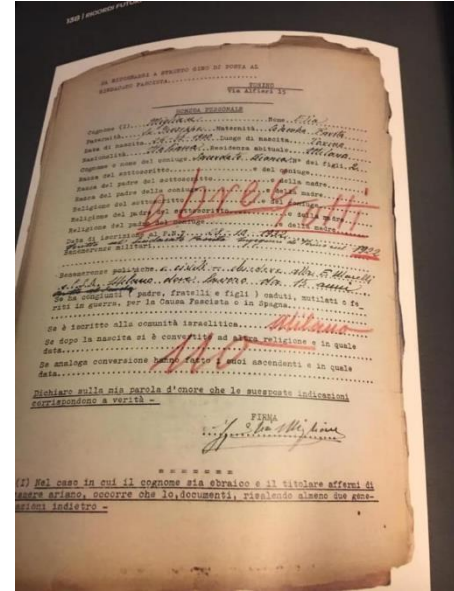 158 | RICORDI FUTU
DA RITORNARSI A STRETTO GIRO DI POSTA AL
SINDACATO FASCISTA
TORINO
Via Alfieri 15
SCHEDA PERSONALE
Cognome (I) Migliau Nome Elia
Paternità fu Giuseppe Maternità
Data di nascita 1900 Luogo di nascita Torino
Nazionalità Italiana Residenza abituale Milano
Cognome e nome del coniuge Bianca N° dei figli 2
Razza del sottoscritto e del coniuge
Razza del padre del sottoscritto e della madre
Razza del padre della coniuge e della madre
Religione del sottoscritto e del coniuge
Religione del padre del sottoscritto e della madre
Religione del padre del coniuge e della madre
ebrei tutti
Data di iscrizione al P.N.F.
Benemerenze militari
1922
Benemerenze politiche e civili
Milano 13 anni
Se ha congiunti ( padre, fratelli e figli ) caduti, mutilati o fe
riti in guerra, per la Causa Fascista o in Spagna
Se è iscritto alla comunità israelitica Milano
Se dopo la nascita si è convertito ad altra religione e in quale
data
no
Se analoga conversione hanno fatto i suoi ascendenti e in quale
data
Dichiaro sulla mia parola d'onore che le suesposte indicazioni
corrispondono a verità -
FIRMA
Ing. Elia Migliau
(I) Nel caso in cui il cognome sia ebraico e il titolare affermi di
essere ariano, occorre che lo documenti, risalendo almeno due gene-
azioni indietro -